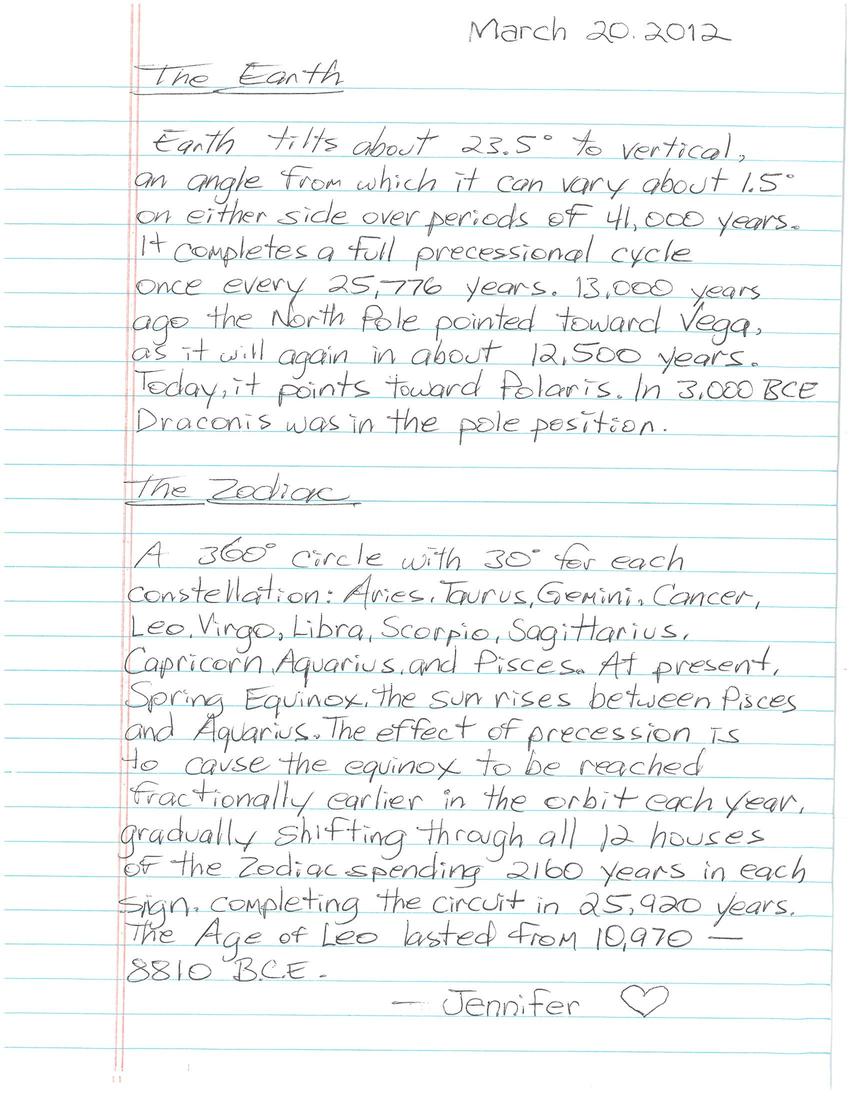 March 20. 2012
The Earth
Earth tilts about 23.5° to vertical,
an angle from which it can vary about 1.5°
on either side over periods of 41,000 years.
It completes a full precessional cycle
once every 25,776 years. 13,000 years
ago the North Pole pointed toward Vega,
as it will again in about 12,500 years.
Today, it points toward Polaris. In 3,000 BCE
Draconis was in the pole position.
The Zodiac
A 360° circle with 30° for each
constellation: Aries, Taurus, Gemini, Cancer,
Leo, Virgo, Libra, Scorpio, Sagittarius,
Capricorn, Aquarius, and Pisces. At present,
Spring Equinox, the sun rises between Pisces
and Aquarius. The effect of precession is
to cause the equinox to be reached
fractionally earlier in the orbit each year,
gradually shifting through all 12 houses
of the Zodiac spending 2160 years in each
sign, completing the circuit in 25,920 years.
The Age of Leo lasted from 10,970 —
8810 B.C.E.
— Jennifer ♡